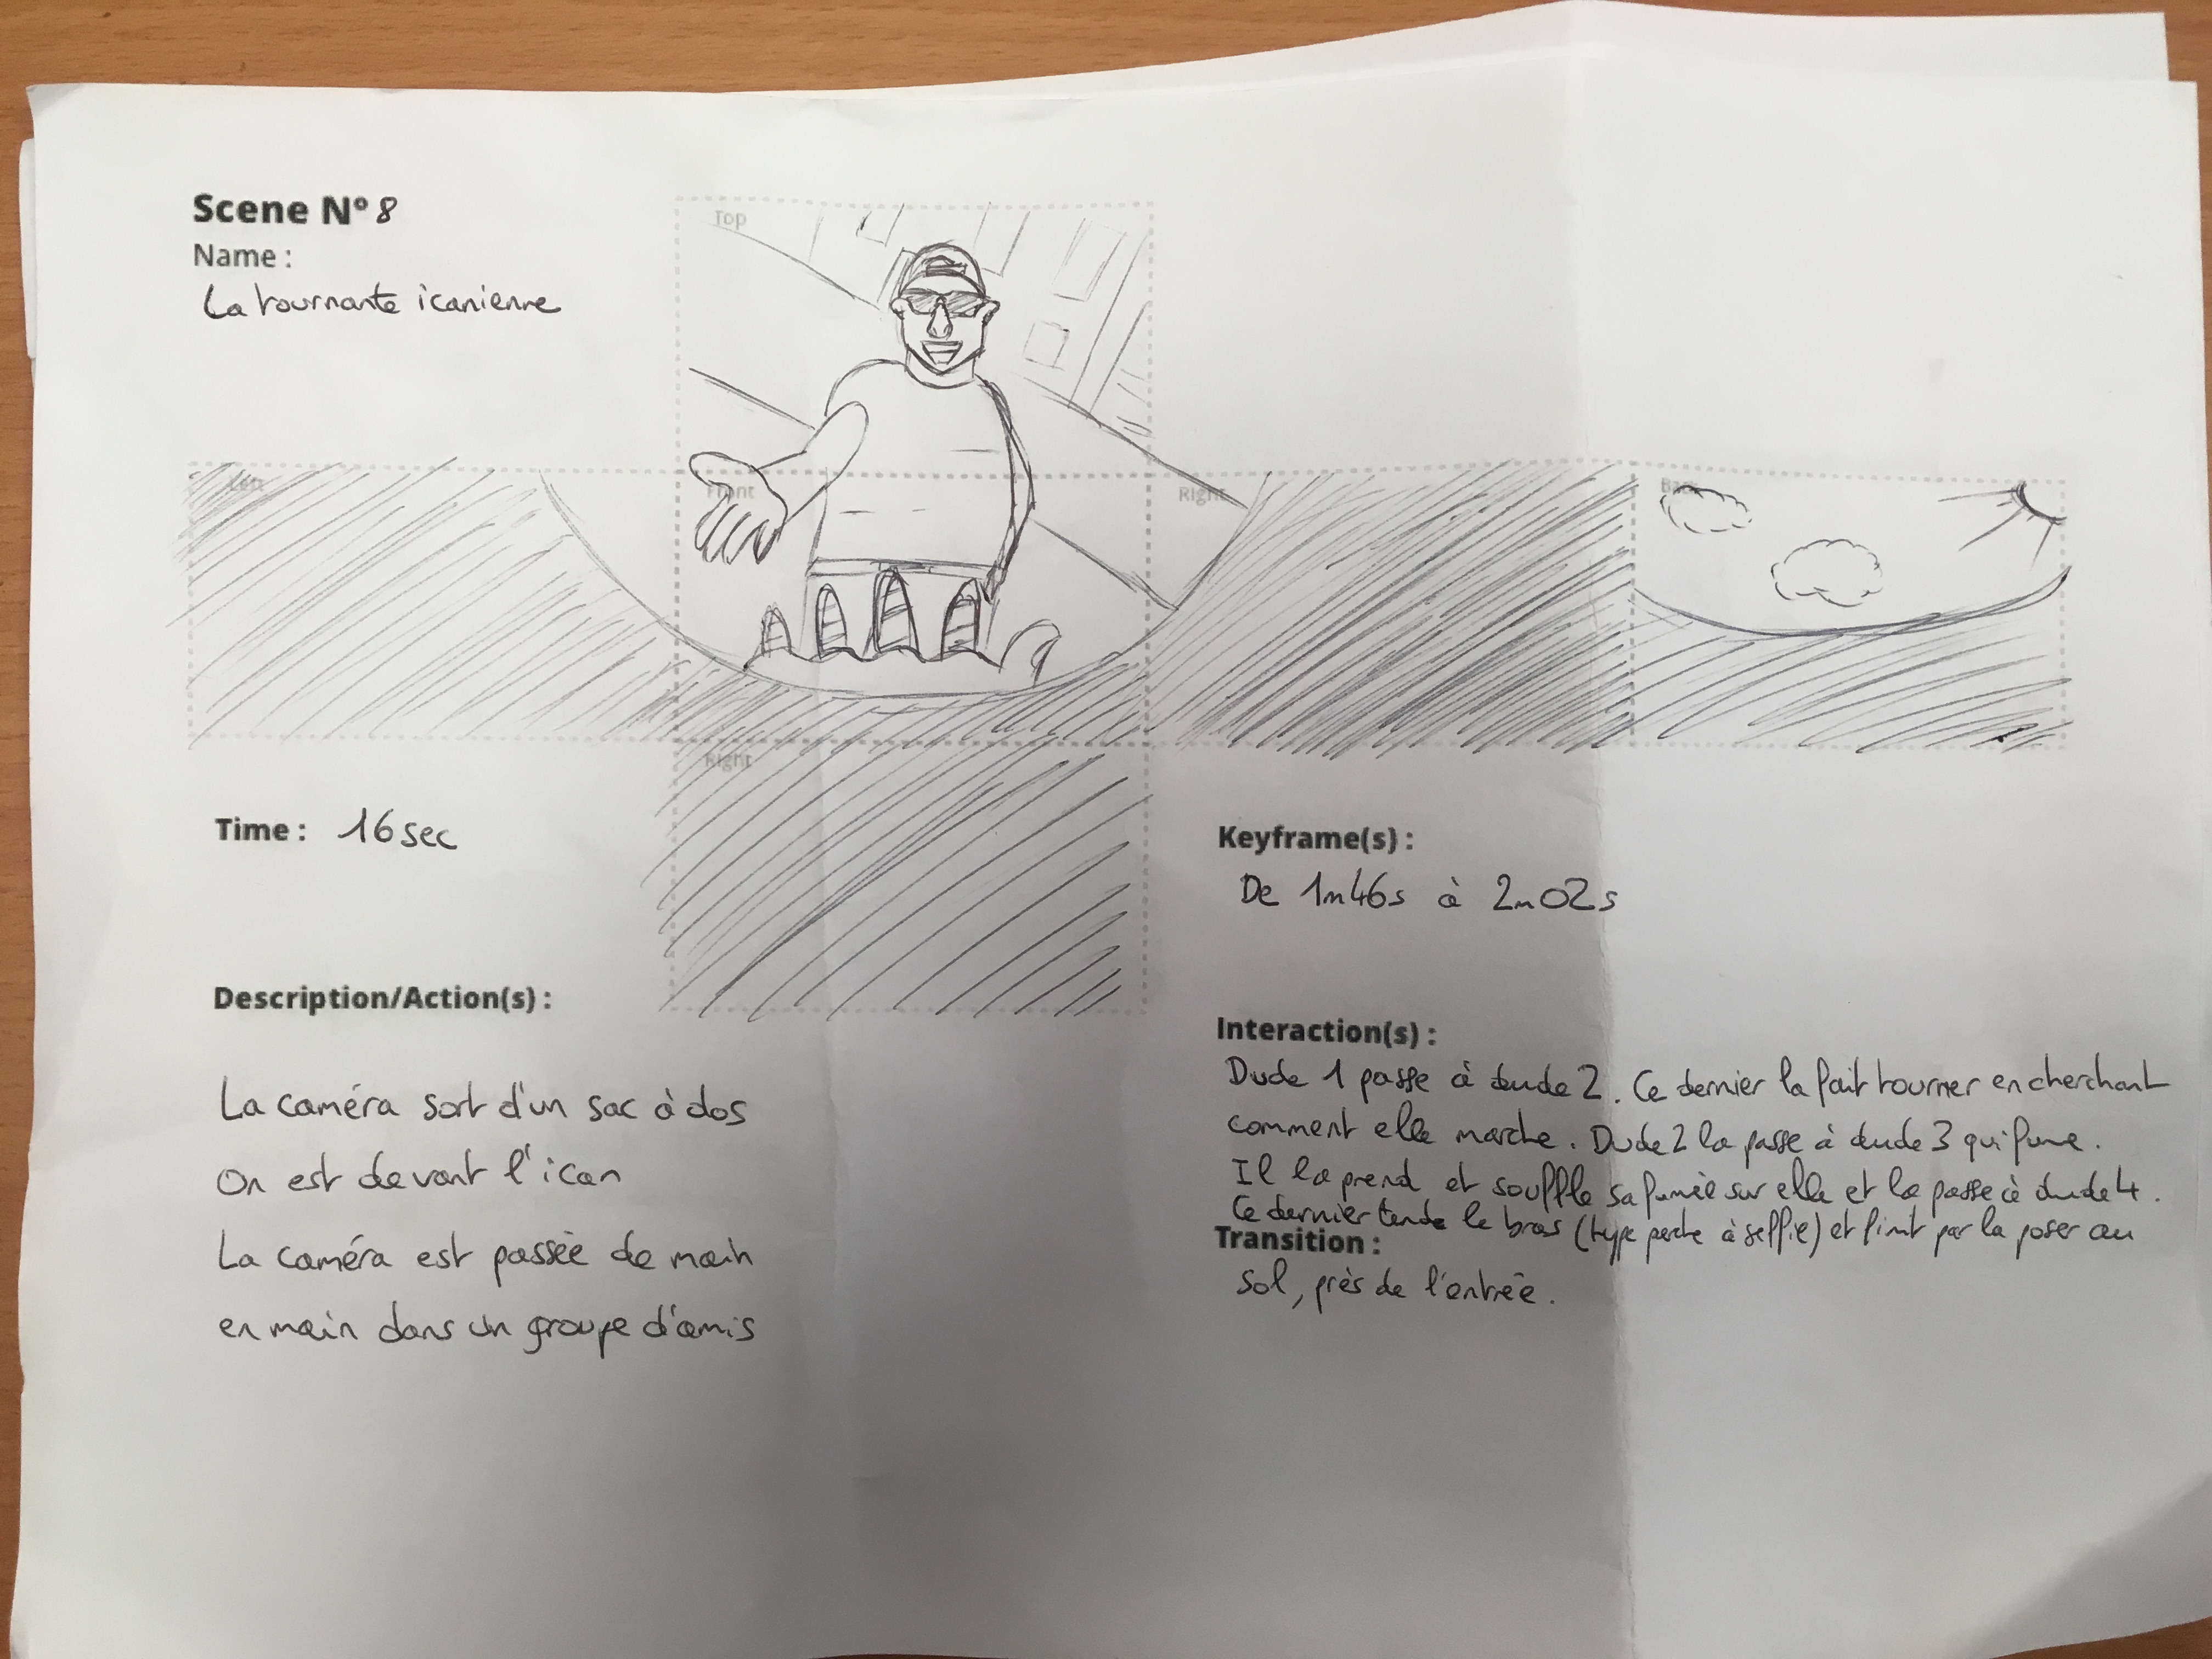 Scene N° 8
Name :
La tournante icanienne
Top
Left
Front
Right
Back
Right
Time : 16 sec
Keyframe(s) :
De 1m46s à 2m02s
Description/Action(s) :
La caméra sort d'un sac à dos
On est devant l'ican
La caméra est passée de main
en main dans un groupe d'amis
Interaction(s) :
Dude 1 passe à dude 2. Ce dernier la fait tourner en cherchant
comment elle marche. Dude 2 la passe à dude 3 qui fume.
Il la prend et souffle sa fumée sur elle et la passe à dude 4.
Ce dernier tends le bras (type perche à selfie) et finit par la poser au
Transition :
sol, près de l'entrée.